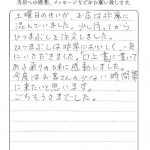 当店への感想、メッセージなどをお願い致します。
土曜日のせいか、お店は非常に
混んでいました。少し待ってから
ひつまぶしを注文しました。
ひつまぶしは非常においしく、一気に
いただきました。口上書に書いて
ある通りのお味に感動しました。
今度はお客さんの少ない時間帯
に来たいと思います。
ごちそうさまでした。